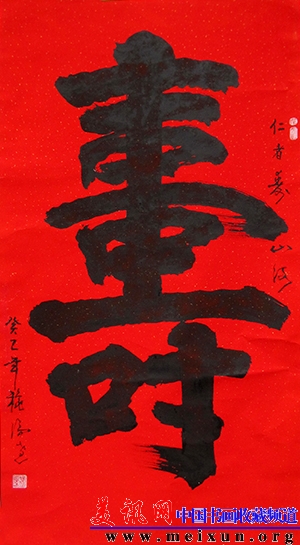 壽
仁者寿山
癸巳年
美讯网
中国书画收藏频道
www.meixun.org